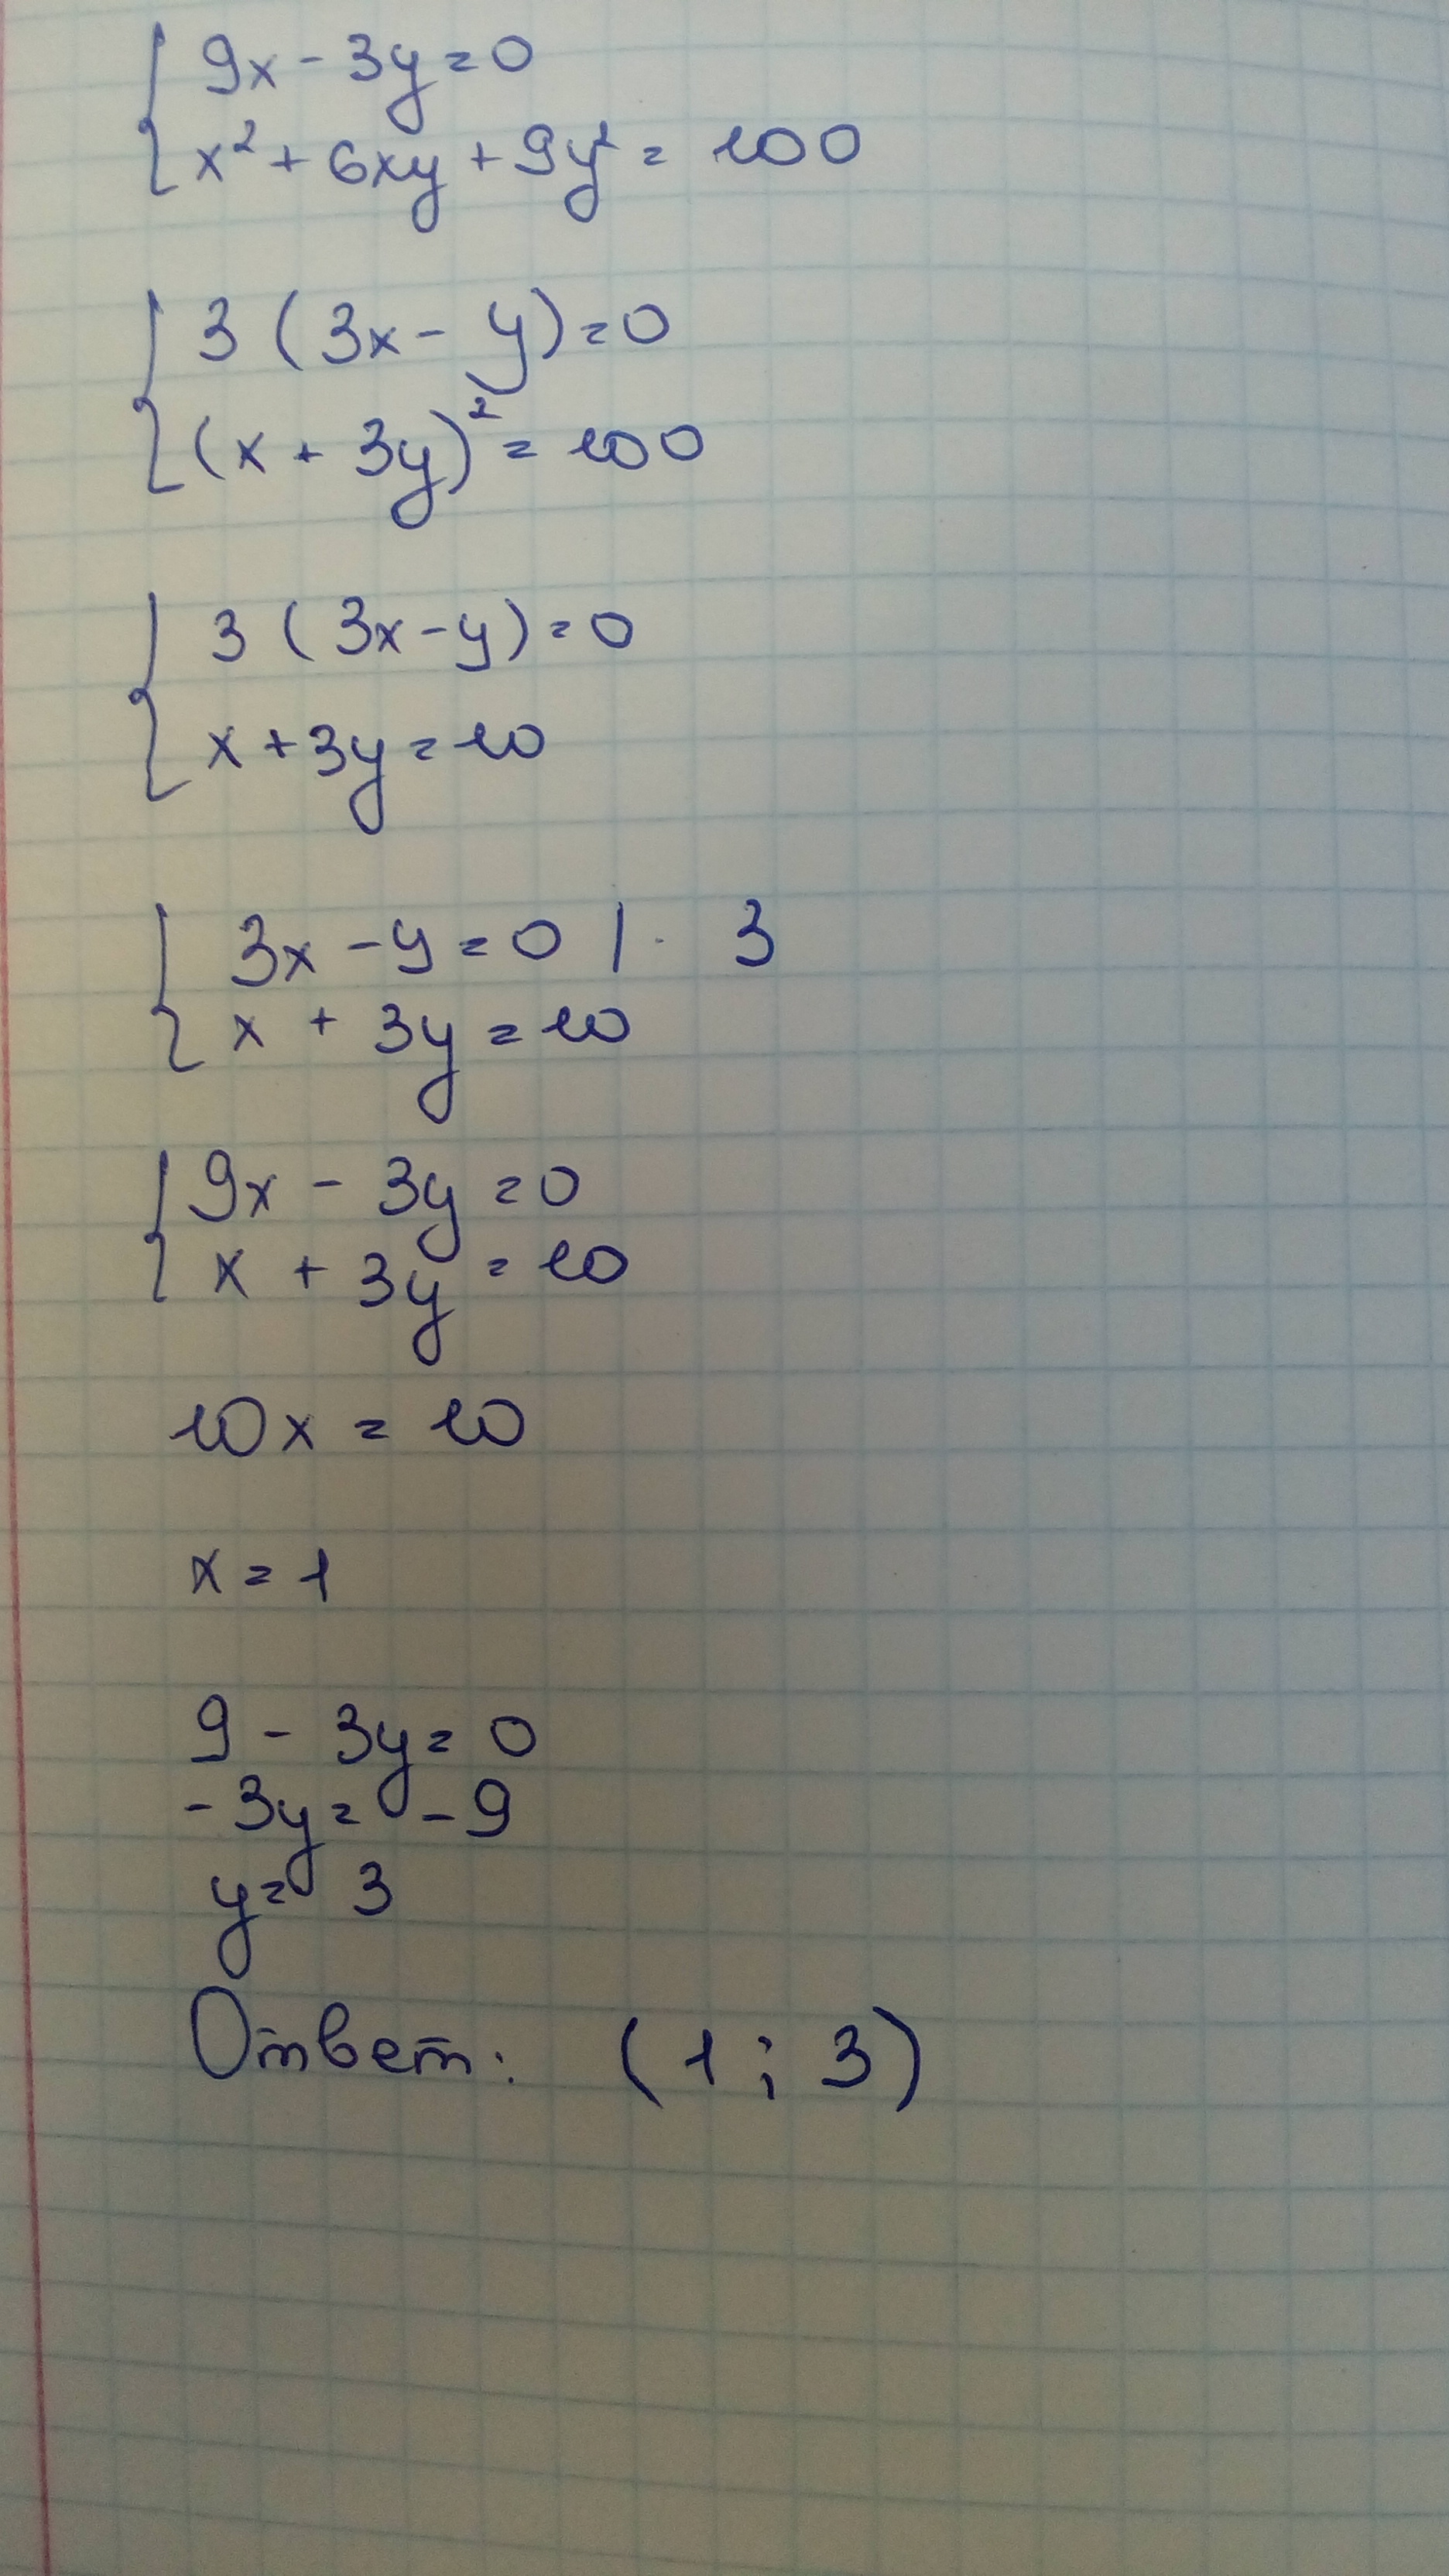 9x - 3y = 0
x² + 6xy + 9y² = 100
3 (3x - y) = 0
(x + 3y)² = 100
3 (3x - y) = 0
x + 3y = 10
3x - y = 0 | · 3
x + 3y = 10
9x - 3y = 0
x + 3y = 10
10x = 10
x = 1
9 - 3y = 0
- 3y = - 9
y = 3
Ответ: (1 ; 3)